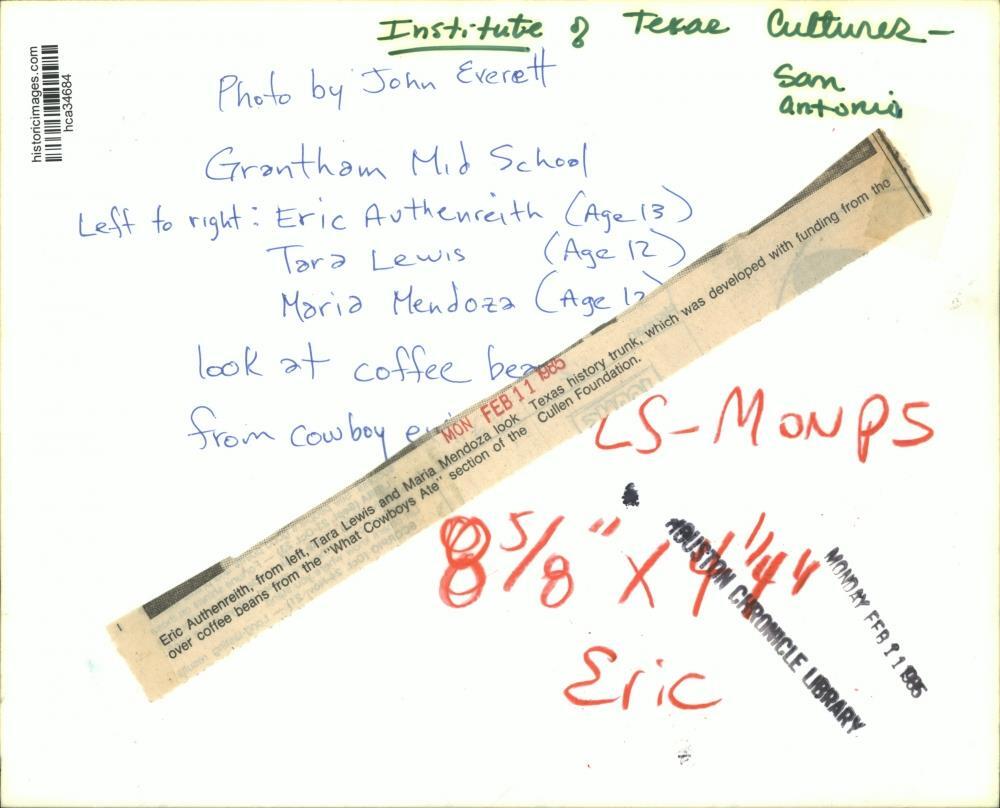 Institute of Texas Cultures -
San
Antonio
historicimages.com
hca34684
Photo by John Everett
Grantham Mid School
Left to right: Eric Authenreith (Age 13)
Tara Lewis (Age 12)
Maria Mendoza (Age 12)
look at coffee
from cowboy
MON FEB 11 1985
Eric Authenreith, from left, Tara Lewis and Maria Mendoza look Texas history trunk, which was developed with funding from the
over coffee beans from the "What Cowboys Ate" section of the Cullen Foundation.
LS-MON PS
8 5/8" X 4 1/4"
Eric
HOUSTON CHRONICLE LIBRARY
MONDAY FEB 11 1985